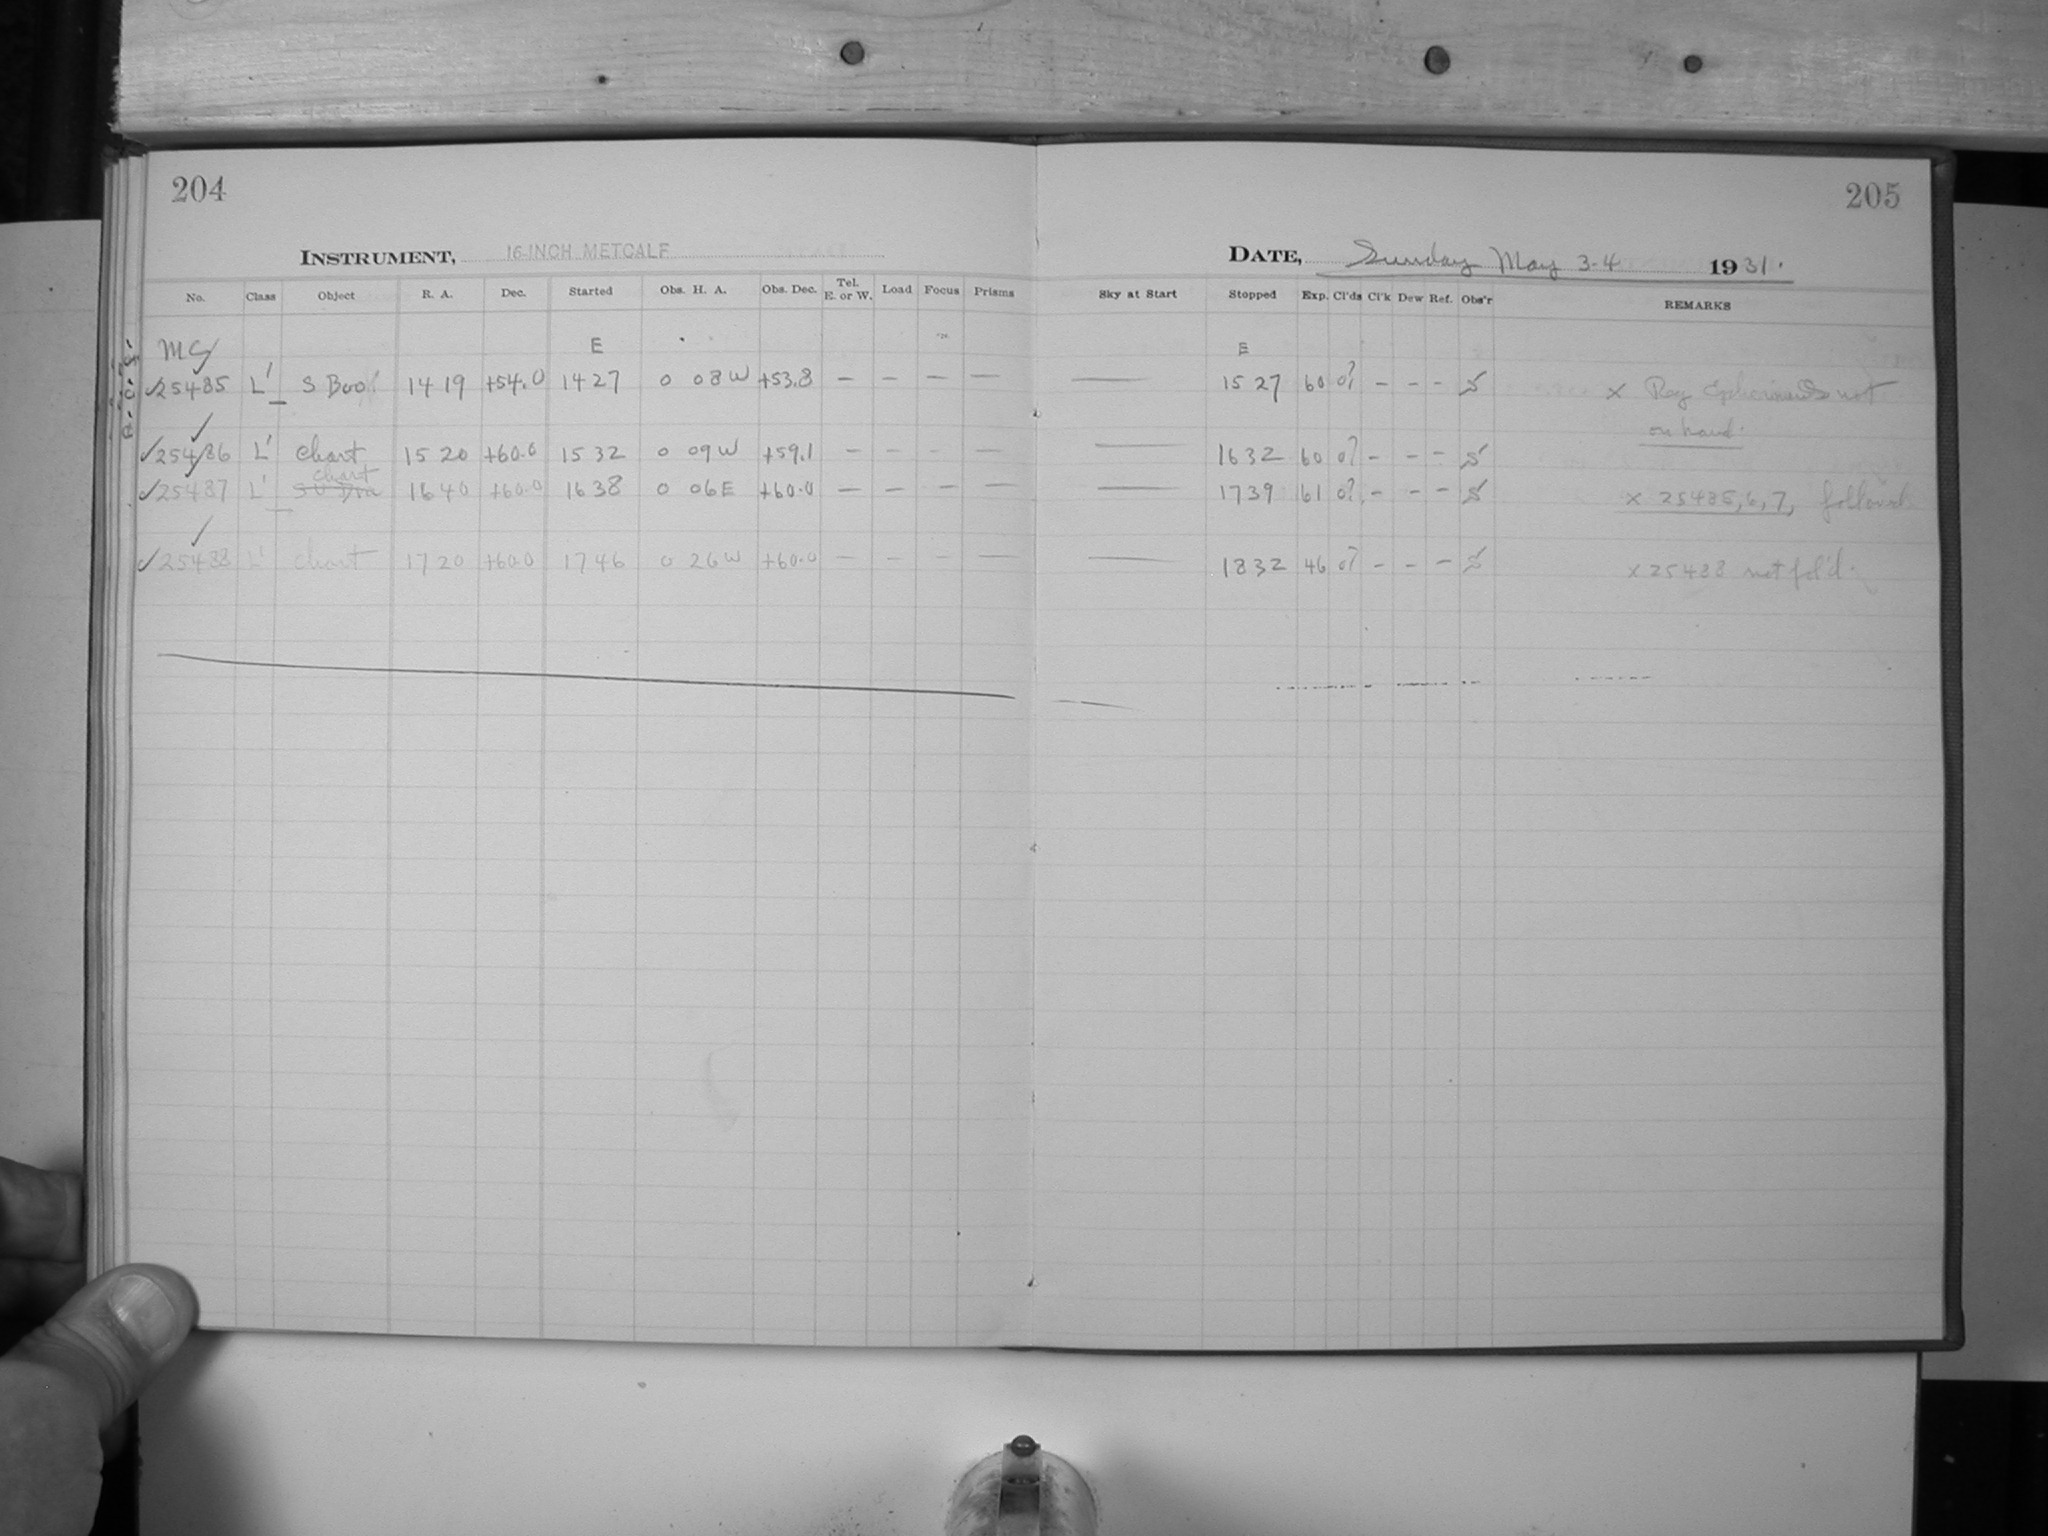 204
205
INSTRUMENT, 16-INCH METCALF
DATE, Sunday May 3-4 1931.
No. Class Object R. A. Dec. Started Obs. H. A. Obs. Dec. Tel. E. or W. Load Focus Prisms Sky at Start Stopped Exp. Cl'ds Cl'k Dew Ref. Obs'r REMARKS
MC E E
25485 L' S Boo 14 19 +54.0 14 27 0 08 W +53.8 — — — — — 15 27 60 0? - - - S x Reg Ephemeris not
on hand.
25486 L' chart 15 20 +60.0 15 32 0 09 W +59.1 — — — — — 16 32 60 0? - - - S
chart
25487 L' SU Dra 16 40 +60.0 16 38 0 06 E +60.0 — — — — — 17 39 61 0? - - - S x 25485, 6, 7, followed
25488 L' chart 17 20 +60.0 17 46 0 26 W +60.0 — — — — — 18 32 46 0? - - - S x 25488 not fol'd.